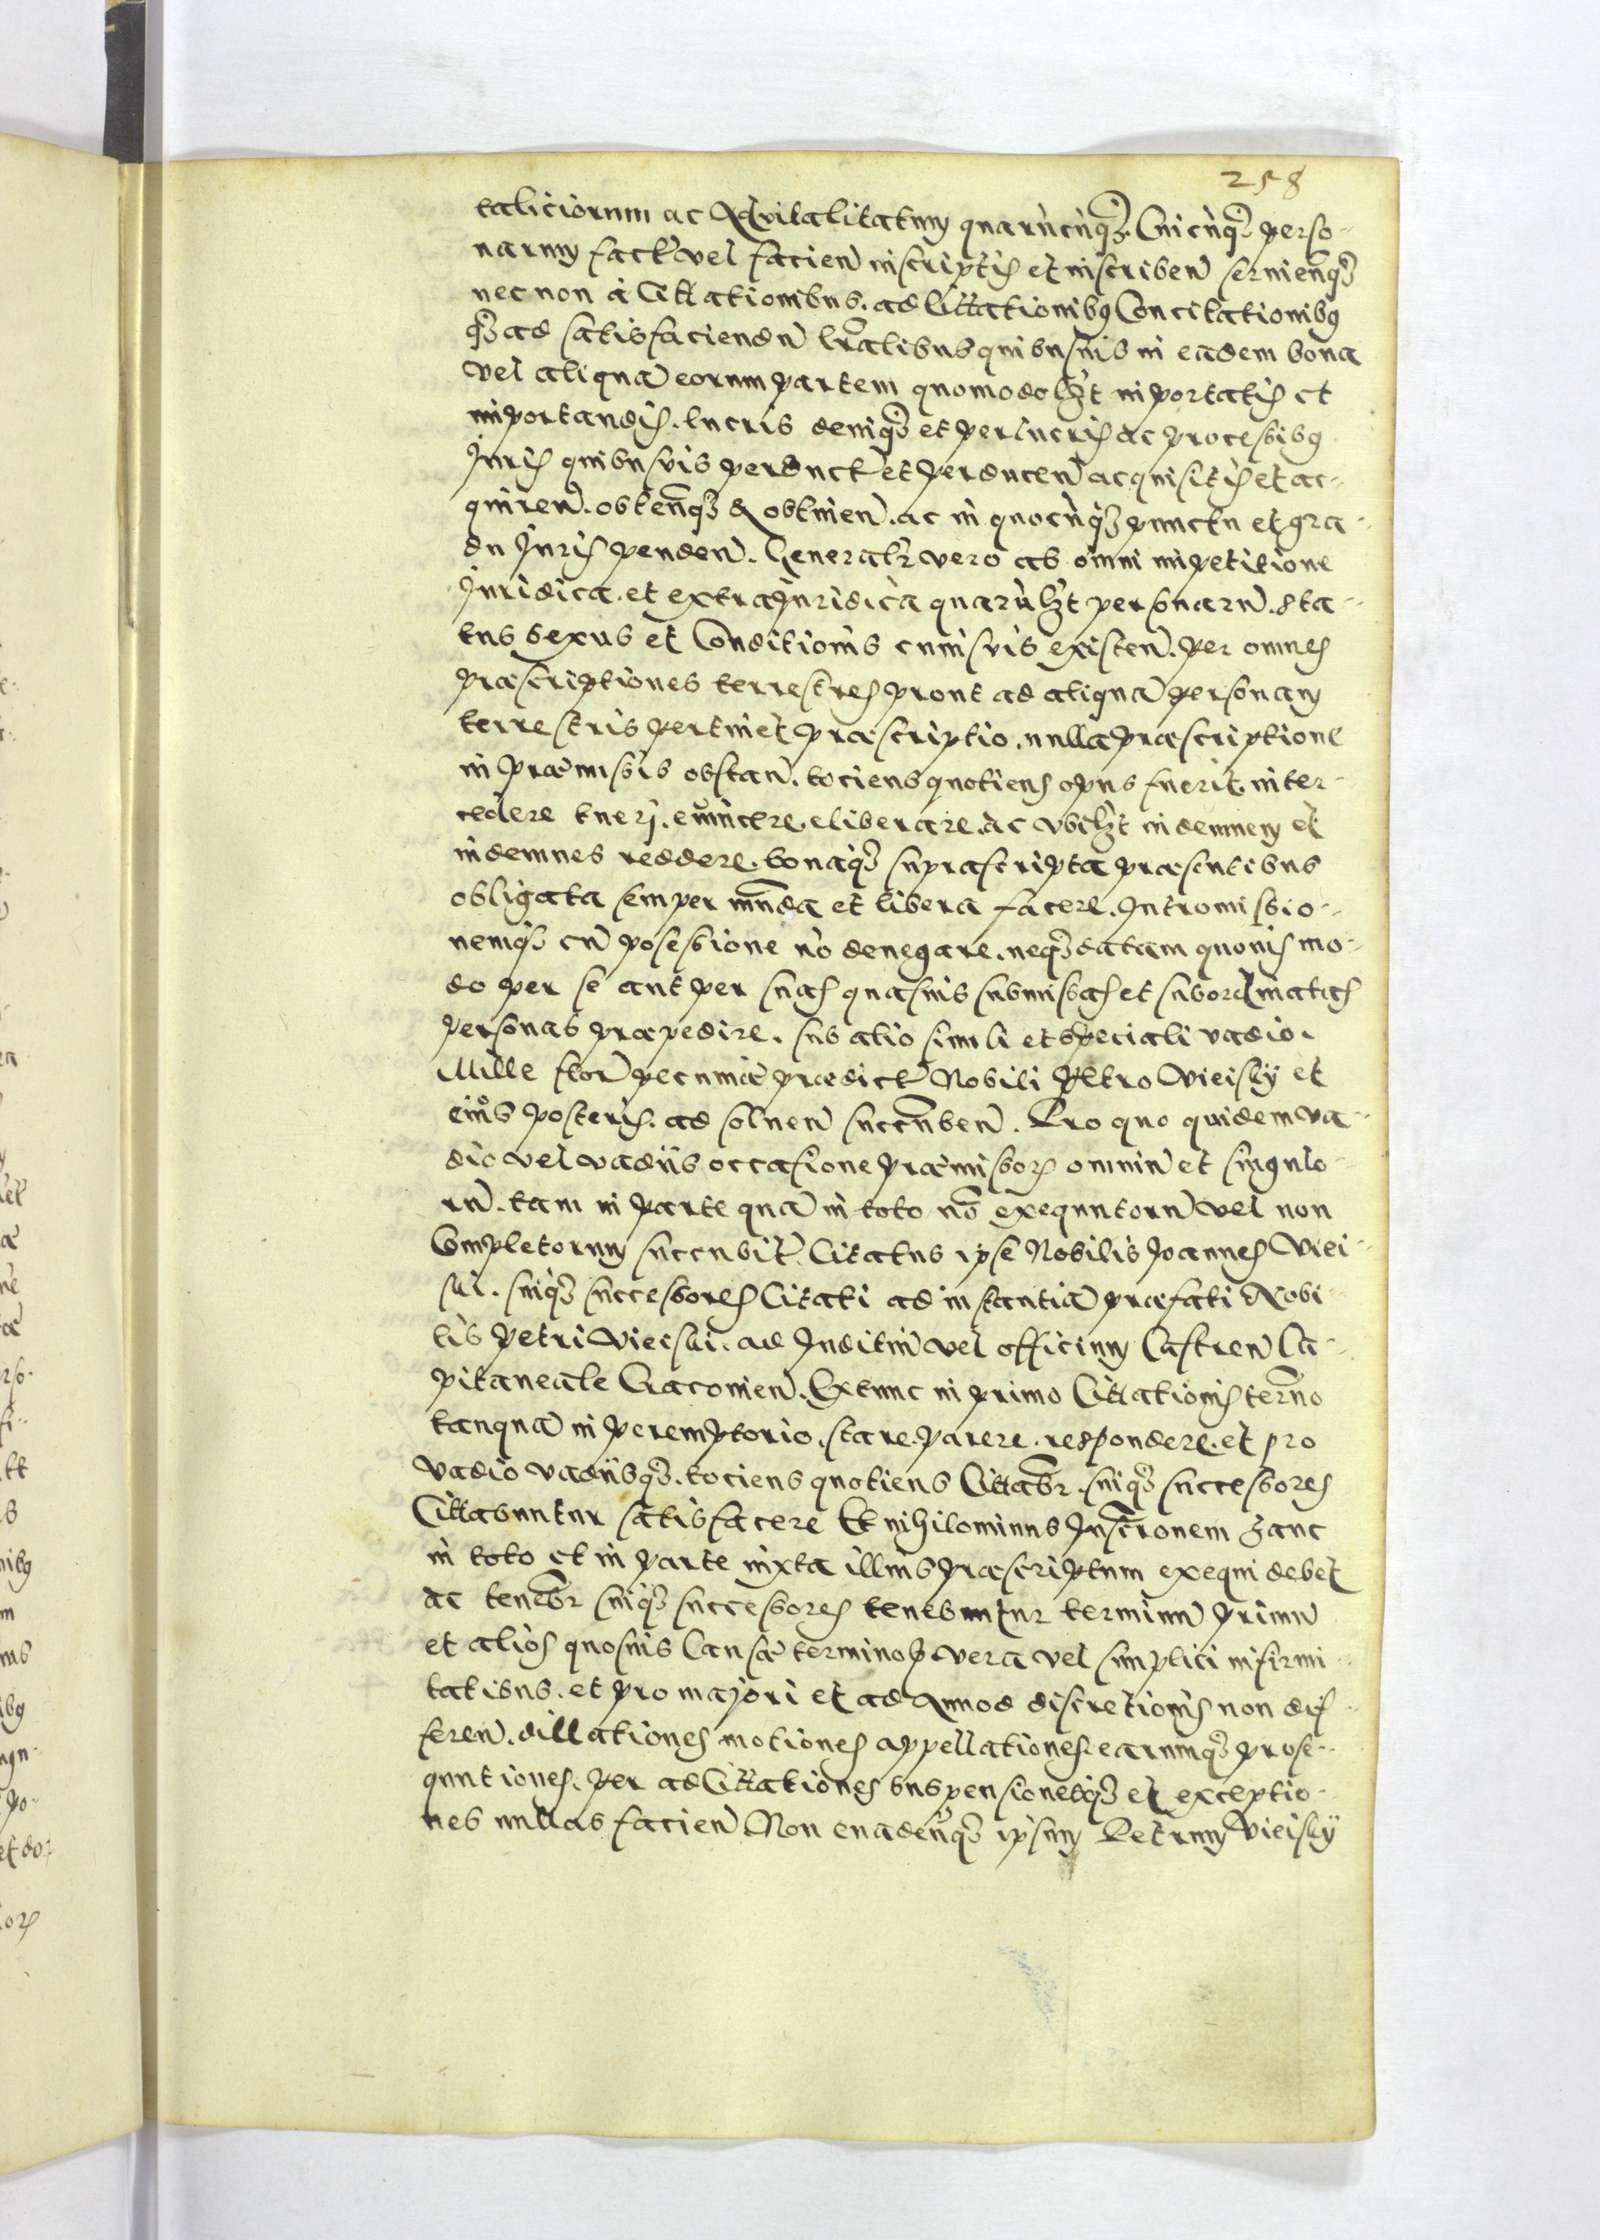 258
taliciorum ac Advitalitatum quarũcũq3. Cuicũq3 perso-
narum fact̃ vel facien̄ inscriptis et inscriben̄ servien̄q3
nec non á Cittationibus. ad Cittationibq Concitationibq
q3 ad satisfaciendũ lr̃alibus quibusuis in eadem bona
vel aliquã eorum partem quomodolʒt importatis et
importandis. lucris deniq3 et perlucris ac processibq
Juris quibusvis perduct̃ et perducen̄ acquisitis et ac-
quiren̄. obten̄q3 & obtinen̄. ac in quocũq3 punctu et gra-
du Juris penden̄. Generalr̃ vero ab omni impetitione
Juridica. et extrajuridica quarũlʒt personarũ. sta-
tus sexus et Conditionis cuiusvis existen̄. per omnes
præscriptiones terrestres prout ad aliquã personam
terrestris pertinet præscriptio. nulla præscriptione
in præmissis obstan̄. tociens quotiens opus fuerit. inter-
cedere tuerj. evincere. eliberare. ac vbilʒt indemnem et
indemnes reddere. bonaq3 suprascripta præsentibus
obligata semper mũda et libera facere. Intromissio-
nemq3 cũ posessione nõ denegare. neq3 datam quovis mo-
do per se aut per suas quasuis submissas et subordinatas
personas præpedire. sub alio simili et speciali vadio.
Mille flor̃ pecuniæ prædict̃ Nobili Petro Vieisky et
eius posteris. ad soluen̄ succũben̄. Pro quo quidem va-
dio vel vadiis occasione præmissor̃ omniũ et singulo-
rũ. tam in parte quã in toto nõ exequutorũ vel non
Completorum succubit̃ Citatus ipse Nobilis Joannes Viei-
ski. suiq3 successores Citati ad instantiã præfati Nobi-
lis Petri Vieiski. ad Juditiũ vel officium Castren̄ Ca-
pitaneale Cracovien̄. Extunc in primo Cittationis term̃o
tanquã in peremptorio. stare. parere. respondere. et pro
vadio vadiisq3. tociens quotiens Cittabr̃. suiq3 successores
Cittabuntur satisfacere Et nihilominus Inscr̃onem hanc
in toto et in parte iuxta illius præscriptum exequi debet
ac tenebr̃ suiq3 successores tenebuntur terminũ primũ
et alios quosuis Causæ terminos vera vel simplici infirmi-
tatibus. et pro majori et ad Annos discretionis non dif-
feren̄. dillationes motiones appellationes. earumq3 prose-
quutiones. per ad Cittationes suspensionesq3 et exceptio-
nes nullas facien̄ Non evaden̄q3 ipsum Petrum Vieisky